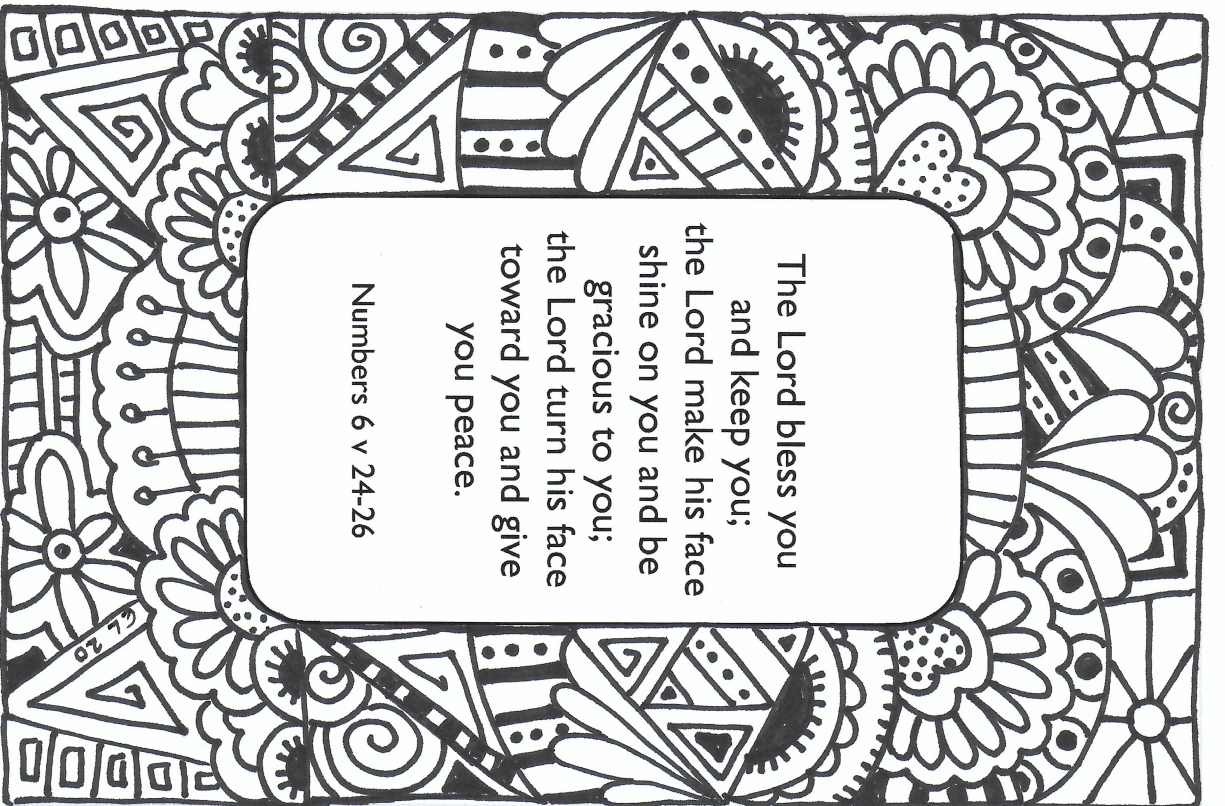 The Lord bless you
and keep you;
the Lord make his face
shine on you and be
gracious to you;
the Lord turn his face
toward you and give
you peace.
Numbers 6 v 24-26
EL 20